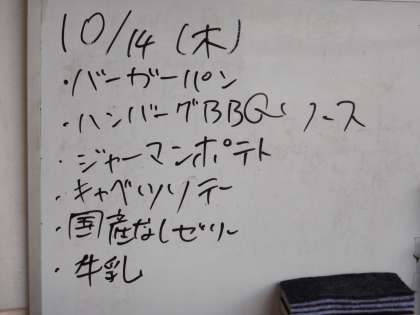 10/14 (木)
・バーガーパン
・ハンバーグBBQソース
・ジャーマンポテト
・キャベツソテー
・国産なしゼリー
・牛乳